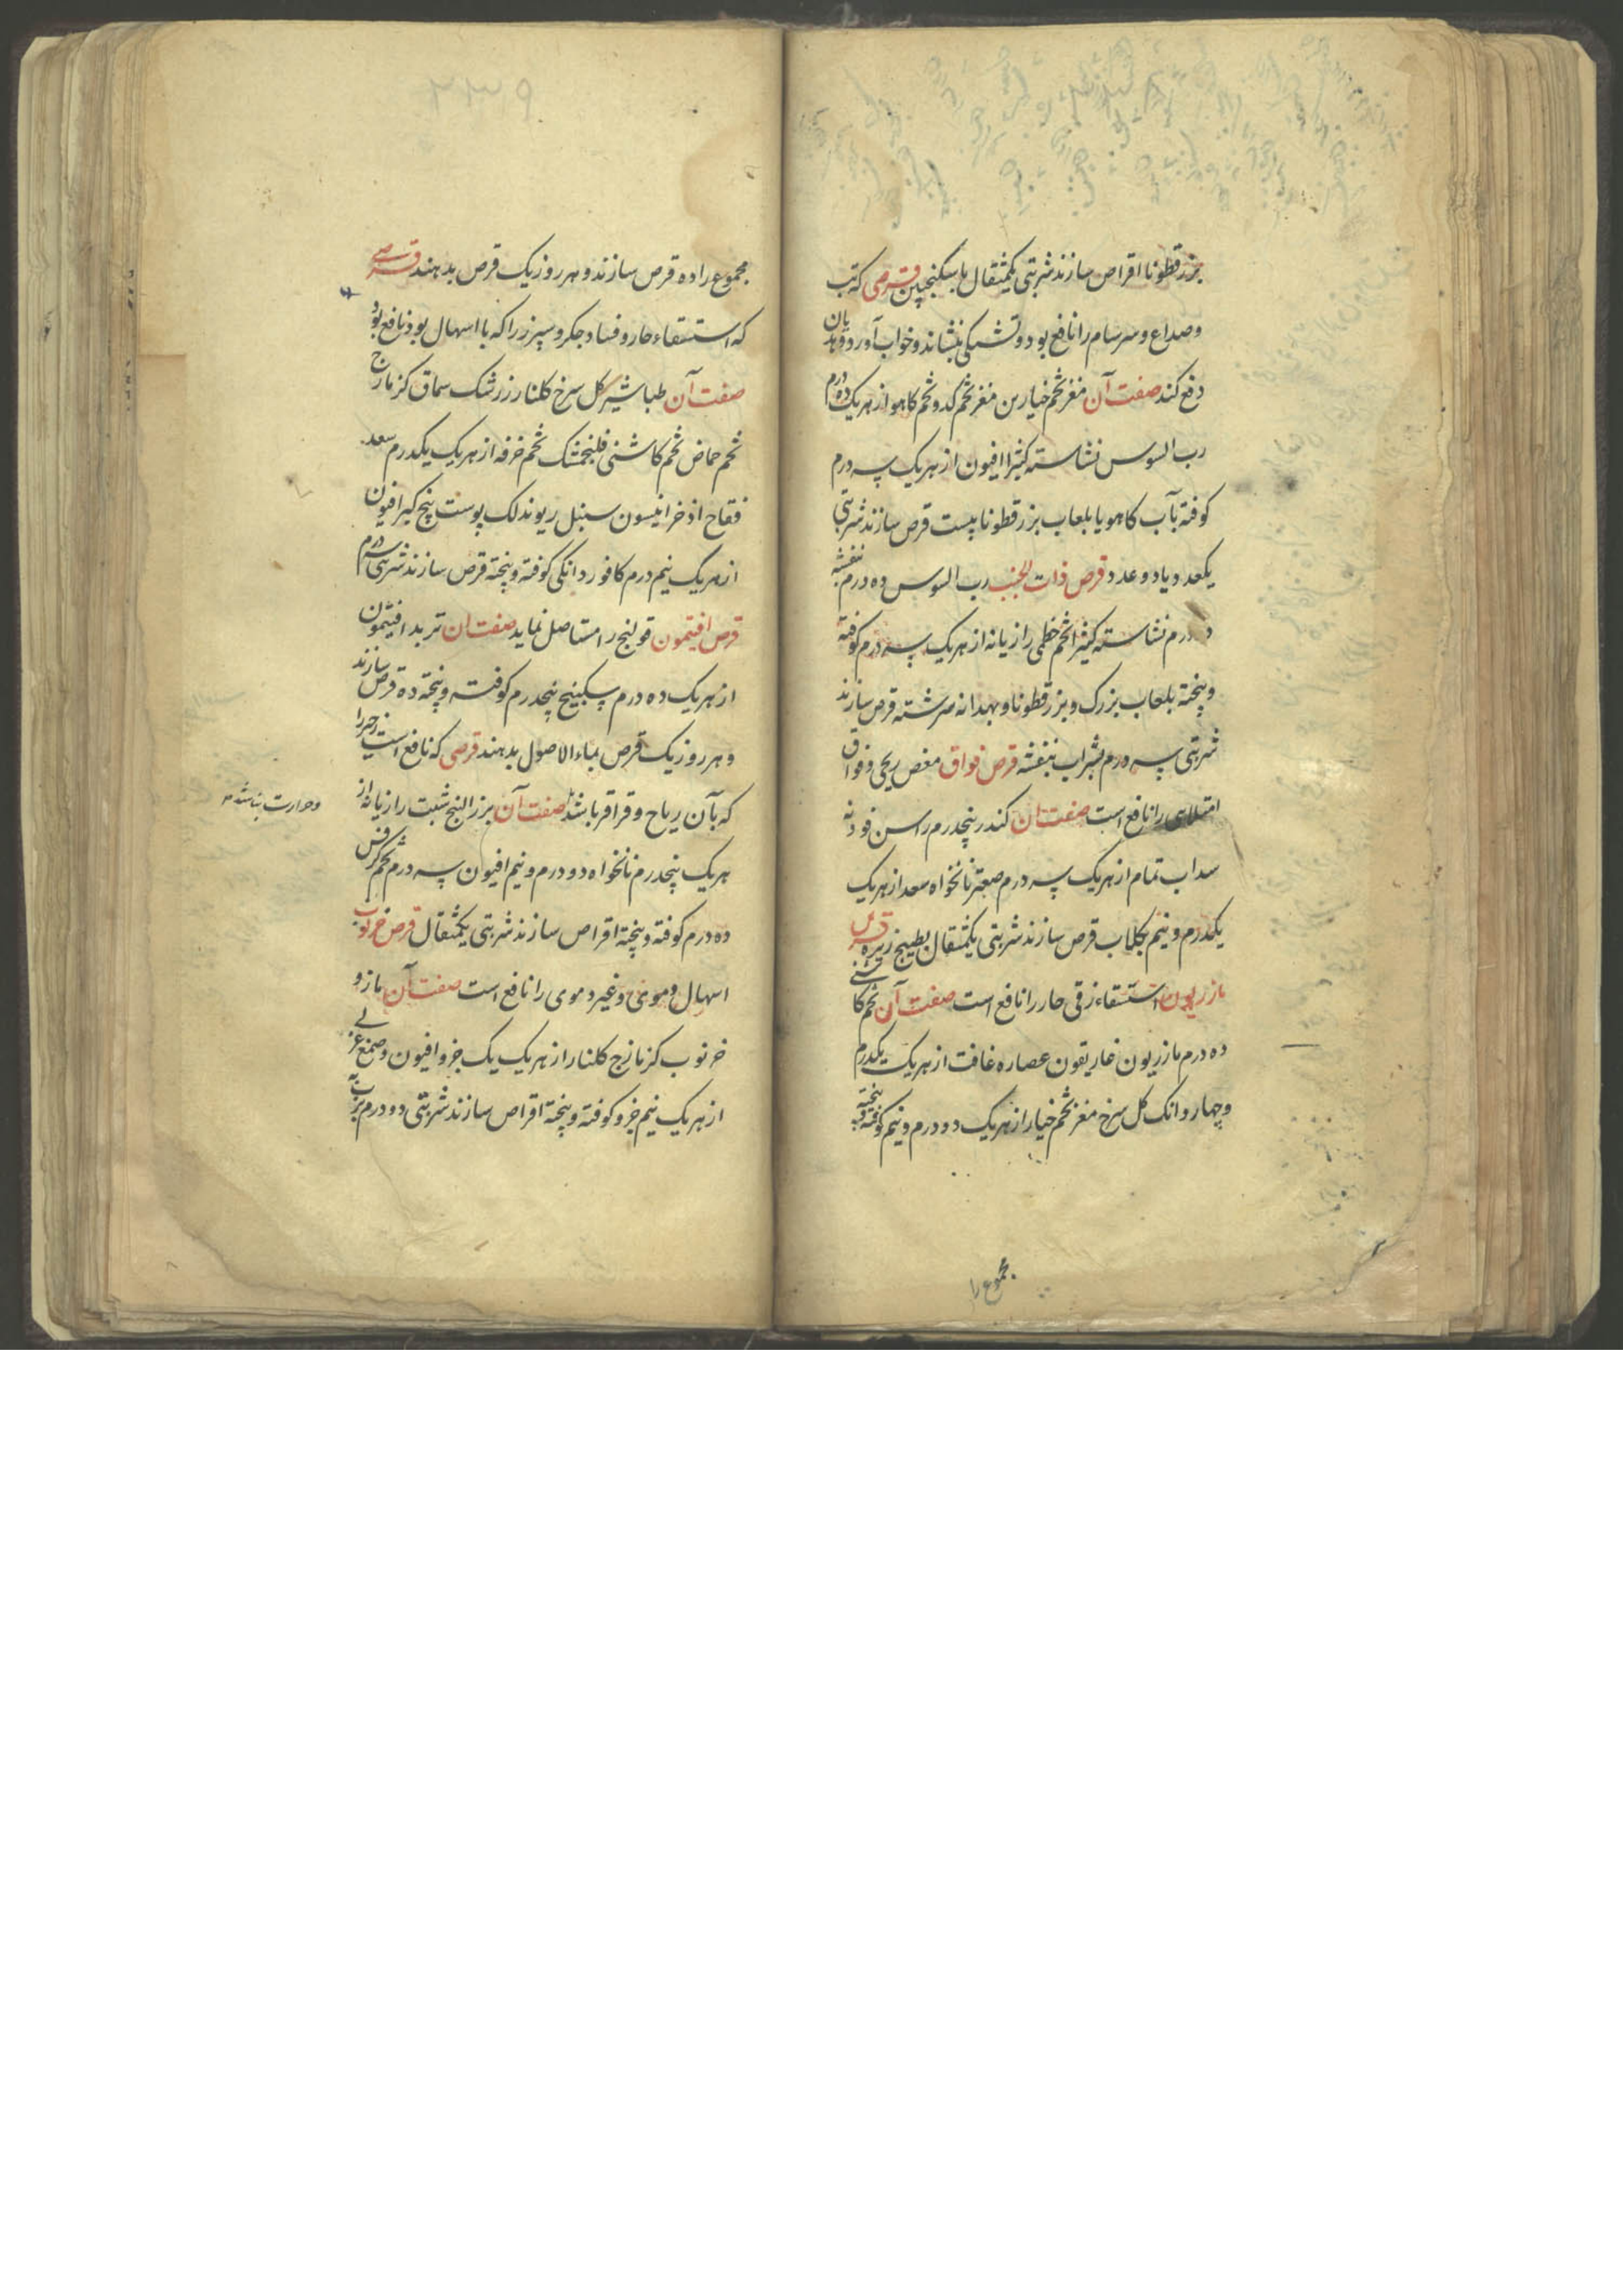 بزرقطونا اقراص سازند شربتی یکمثقال با سکنجبین قرصی که تب
وصداع و سرسام را نافع بود و تشنگی بنشاند و خواب آورد و هذیان
دفع کند صفت آن مغز تخم خیارین مغز تخم کدو تخم کاهو از هریک ده درم
رب السوس نشاسته کثیرا افیون از هریک سه درم
کوفته بآب کاهو یا بلعاب بزرقطونا بیست قرص سازند شربتی
یکعدد یا دو عدد قرص ذات الجنب رب السوس ده درم بنفشه
درم نشاسته کثیرا تخم خطمی رازیانه از هریک سه درم کوفته
و پخته بلعاب بزرک و بزرقطونا و بهدانه سرشته قرص سازند
شربتی سه درم بشراب بنفشه قرص فواق مغص ریحی و فواق
امتلاهی را نافع است صفت آن کندر پنجدرم راسن فودنه
سداب تمام از هریک سه درم صعتر نانخواه سعد از هریک
یکدرم و نیم بکلاب قرص سازند شربتی یکمثقال بطبیخ زیره قرص
مازریون استسقاء زقی حار را نافع است صفت آن تخم کاشنی
ده درم مازریون غاریقون عصاره غافت از هریک یکدرم
و چهار دانک کل سرخ مغز تخم خیار از هریک دو درم و نیم کوفته و پخته
مجموع را
۲۳۹
مجموع را ده قرص سازند و هر روز یک قرص بدهند قرصی
که استسقاء حار و فساد جکر و سپرز را که با اسهال بود نافع بود
صفت آن طباشیر کل سرخ کلنار زرشک سماق کزمازج
تخم حماض تخم کاشنی فلنجمشک تخم خرفه از هریک یکدرم سعد
فقاح اذخر انیسون سنبل ریوند لک پوست بیخ کبر افیون
از هریک نیم درم کافور دانکی کوفته و پخته قرص سازند شربتی سه درم
قرص افتیمون قولنج را مستاصل نماید صفت آن تربد افتیمون
از هریک ده درم سکبینج پنجدرم کوفته و پخته ده قرص سازند
و هر روز یک قرص بماء الاصول بدهند قرصی که نافع است زحیر را
که بآن ریاح و قراقر باشد صفت آن بزرالبنج شبت رازیانه از
وحرارت نباشد
هریک پنجدرم نانخواه دو درم و نیم افیون سه درم تخم کرفس
ده درم کوفته و پخته اقراص سازند شربتی یکمثقال قرص خرنوب
اسهال دموی و غیر دموی را نافع است صفت آن مازو
خرنوب کزمازج کلنار از هریک یک جزو افیون و صمغ عربی
از هریک نیم جزو کوفته و پخته اقراص سازند شربتی دو درم برب به